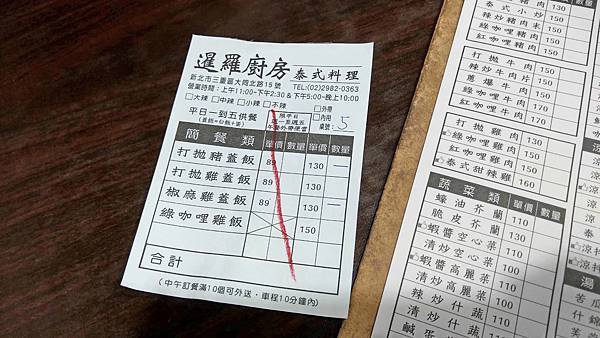 暹羅廚房 泰式料理
新北市三重區大同北路15號 TEL:(02)2982-0363
營業時間：上午11:00~下午2:30 & 下午5:00~晚上10:00
□大辣 □中辣 □小辣 □不辣 □外帶
平日一到五供餐 限平日 □內用
週一至週五 桌號: 5
簡餐類 單價 數量 單價 數量
打拋豬蓋飯 89 130 一
打拋雞蓋飯 89 130
椒麻雞蓋飯 89 130 一
綠咖哩雞飯 150
合計
(中午訂餐滿10個可外送，車程10分鐘內)
數量
泰式小炒 150
辣炒豬肉末 150
綠咖哩豬肉 150
紅咖哩豬肉 150
打拋牛肉 150
辣炒牛肉片 150
蔥爆牛肉 150
綠咖哩牛肉 170
紅咖哩牛肉 170
打拋雞肉 150
綠咖哩雞肉 150
紅咖哩雞肉 150
泰式甜辣雞 160
蔬菜類 單價 數量
蠔油芥蘭 110
脆皮芥蘭 130
蝦醬空心菜 110
清炒空心菜 100
蝦醬高麗菜 110
清炒高麗菜 100
辣炒什蔬
清炒什蔬
鹹蛋
湯